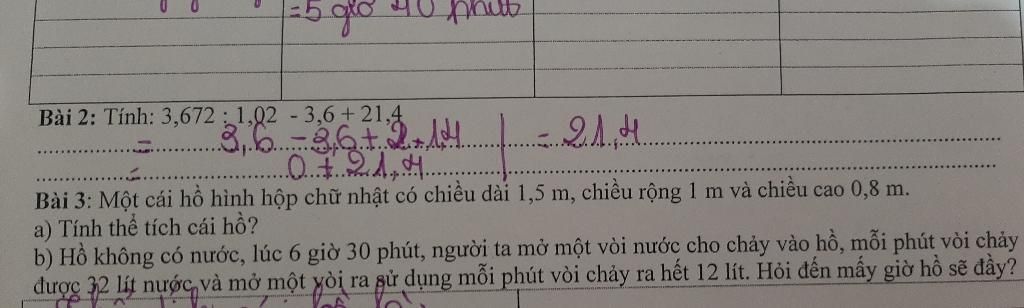 =5 giờ 40 phút
Bài 2: Tính: 3,672 : 1,02 - 3,6 + 21,4
= 3,6 - 3,6 + 21,4 = 21,4
= 0 + 21,4
Bài 3: Một cái hồ hình hộp chữ nhật có chiều dài 1,5 m, chiều rộng 1 m và chiều cao 0,8 m.
a) Tính thể tích cái hồ?
b) Hồ không có nước, lúc 6 giờ 30 phút, người ta mở một vòi nước cho chảy vào hồ, mỗi phút vòi chảy
được 32 lít nước và mở một vòi ra sử dụng mỗi phút vòi chảy ra hết 12 lít. Hỏi đến mấy giờ hồ sẽ đầy?